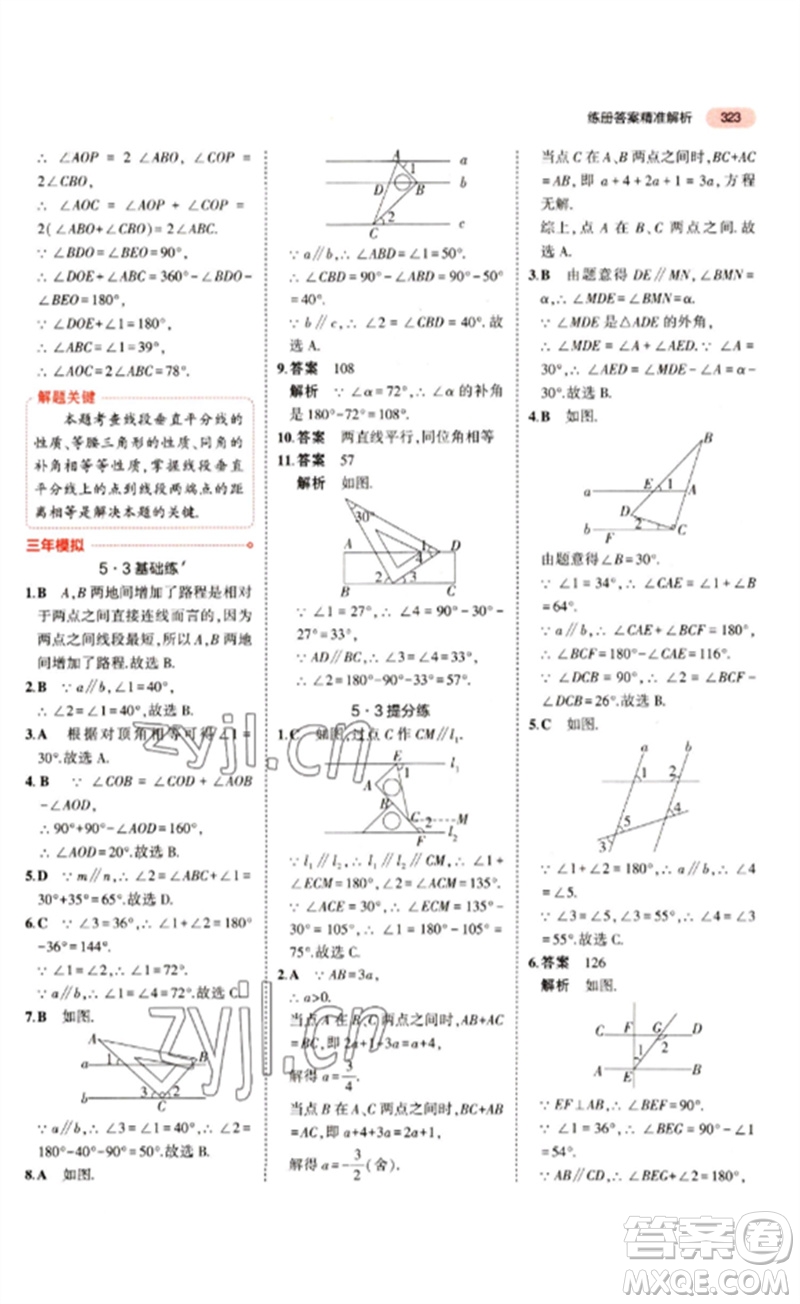 练册答案精准解析 323
∴ ∠AOP = 2 ∠ABO, ∠COP =
2∠CBO,
∴ ∠AOC = ∠AOP + ∠COP =
2(∠ABO+∠CBO)= 2∠ABC.
∵ ∠BDO=∠BEO=90°,
∴ ∠DOE+∠ABC=360°-∠BDO-
∠BEO=180°,
∵ ∠DOE+∠1=180°,
∴ ∠ABC=∠1=39°,
∴ ∠AOC=2∠ABC=78°.
解题关键
本题考查线段垂直平分线的
性质、等腰三角形的性质、同角的
补角相等等性质,掌握线段垂直
平分线上的点到线段两端点的距
离相等是解决本题的关键.
三年模拟
5·3基础练
1.B A,B两地间增加了路程是相对
于两点之间直接连线而言的,因为
两点之间线段最短,所以A,B两地
间增加了路程.故选B.
2.B ∵ a∥b,∠1=40°,
∴ ∠2=∠1=40°,故选B.
3.A 根据对顶角相等可得∠1=
30°.故选A.
4.B ∵ ∠COB = ∠COD + ∠AOB
-∠AOD,
∴ 90°+90°-∠AOD=160°,
∴ ∠AOD=20°.故选B.
5.D ∵ m∥n,∴ ∠2=∠ABC+∠1=
30°+35°=65°.故选D.
6.C ∵ ∠3=36°,∴ ∠1+∠2=180°
-36°=144°.
∵ ∠1=∠2,∴ ∠1=72°.
∵ a∥b,∴ ∠1=72°.故选C.
7.B 如图.
A
a
1
B
b
3
2
C
∵ a∥b,∴ ∠1=∠3=40°,∴ ∠2=
180°-40°-90°=50°.故选B.
8.A 如图.
A
a
1
D
B
b
2
C
c
∵ a∥b,∴ ∠ABD=∠1=50°.
∴ ∠CBD = 90°-∠ABD = 90°-50°
=40°.
∵ b∥c,∴ ∠2=∠CBD=40°.故
选A.
9.答案 108
解析 ∵ ∠α=72°,∴ ∠α的补角
是180°-72°=108°.
10.答案 两直线平行,同位角相等
11.答案 57
解析 如图.
30°
A
4
1
D
B
2
3
C
∵ ∠1=27°,∴ ∠4=90°-30°-
27°=33°,
∵ AD∥BC,∴ ∠3=∠4=33°,
∴ ∠2=180°-90°-33°=57°.
5·3提分练
1.C 如图,过点C作CM∥l₁.
E
l₁
1
A
B
C
M
2
F
l₂
∵ l₁∥l₂,∴ l₁∥l₂∥CM,∴ ∠1+
∠ECM=180°,∠2=∠ACM,
∵ ∠ACE=30°,∴ ∠1+∠2+30°=
180°,∵ ∠1=2∠2,∴ ∠1=
75°.故选C.
2.A ∵ AB=3a,
∴ a>0.
当点A在B、C两点之间时,AB+AC
=BC,即3a+2a+1=a+4,
解得a=3/4.
当点B在A、C两点之间时,BC+AB
=AC,
∴ a+4+3a=2a+1,
解得a=-3/2(舍).
当点C在A、B两点之间时,BC+AC
=AB,即a+4+2a+1=3a,方程
无解.
综上,点A在B、C两点之间.故
选A.
3.B 由题意得DE∥MN,∠BMN=
α,∴ ∠MDE=∠BMN=α.
∵ ∠MDE是△ADE的外角,
∴ ∠MDE=∠AED+∠A.∵ ∠A=
30°,∴ ∠AED=∠MDE-∠A=α-
30°.故选B.
4.B 如图.
B
E
1
A
a
D
2
C
F
b
由题意得∠B=30°.
∵ ∠1=34°,∴ ∠CAE=∠1+∠B
=64°.
∵ a∥b,∴ ∠CAE+∠BCF=180°,
∴ ∠BCF=180°-∠CAE=116°.
∵ ∠DCB=90°,∴ ∠2=∠BCF-
∠DCB=26°.故选B.
5.C 如图.
a
b
1
2
5
4
3
∵ ∠1+∠2=180°,∴ a∥b,∴ ∠4
=∠5,∵ ∠3=∠5,∠3=55°,∴ ∠4
=55°.故选C.
6.答案 126
解析 如图.
C
F
G
D
2
1
A
E
B
∵ EF⊥AB,∴ ∠BEF=90°.
∵ ∠1=36°,∴ ∠BEG=90°-∠1
=54°.
∵ AB∥CD,∴ ∠BEG+∠2=180°,
zyjl.cn
zyjl.cn
答案圈
MXQE.COM